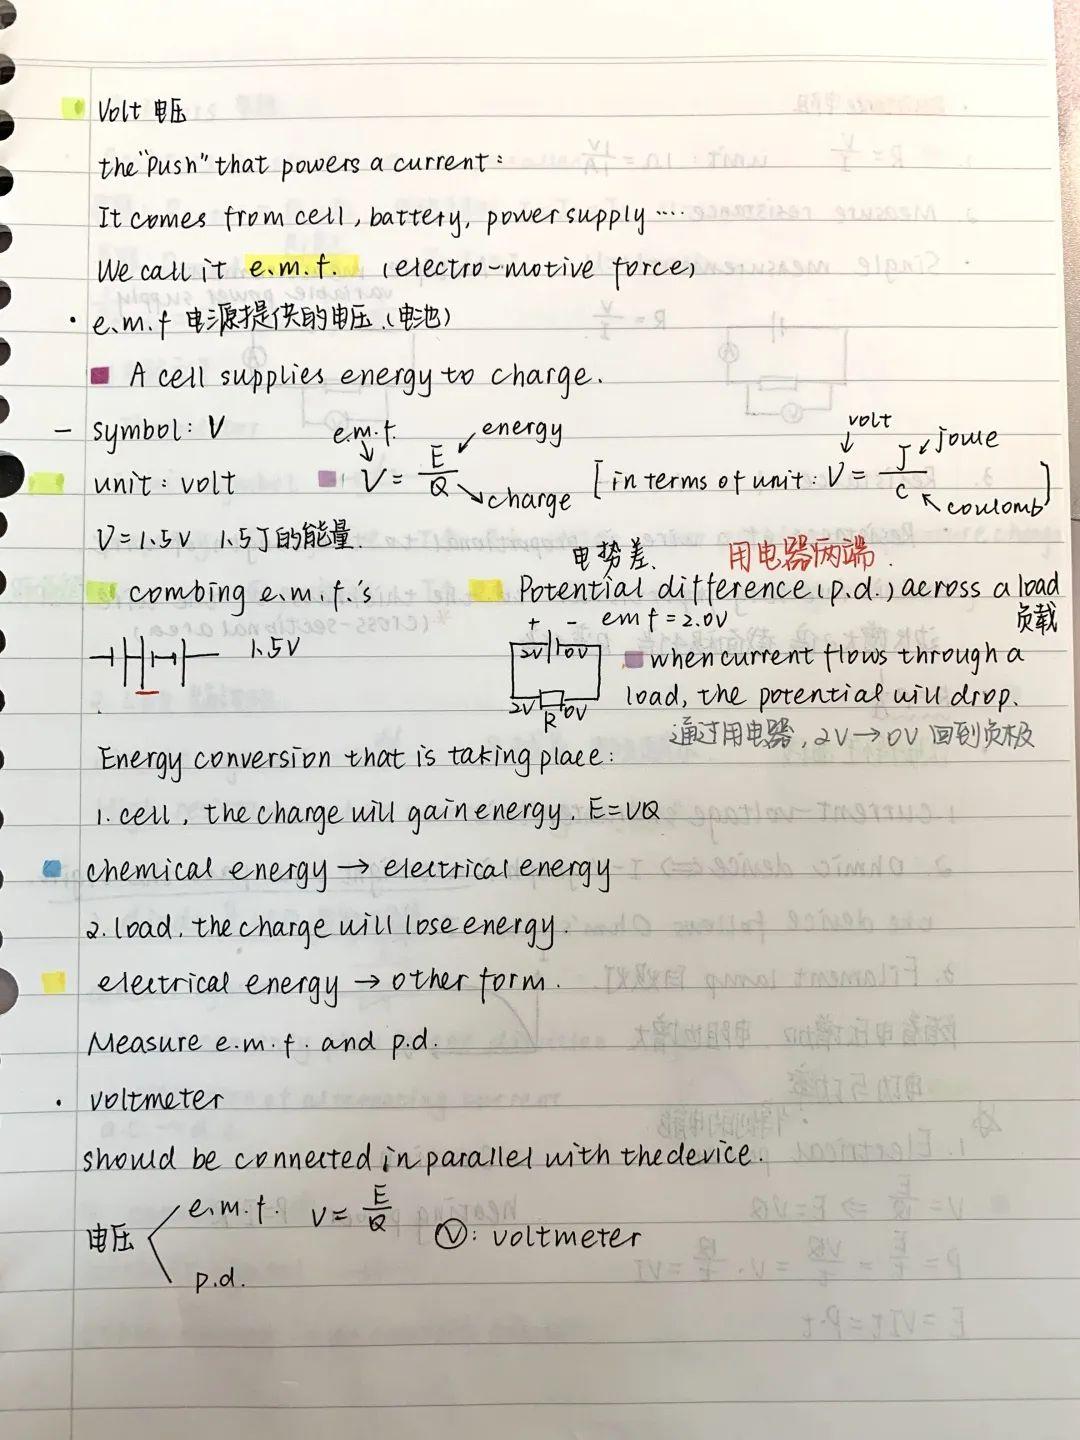 Volt 电压
the "Push" that powers a current:
It comes from cell, battery, power supply ....
We call it e.m.f. (electro-motive force)
· e.m.f 电源提供的电压.(电池)
A cell supplies energy to charge.
- symbol: V
e.m.f. energy
V = E/Q
charge
volt joule
[in terms of unit: V = J/C]
coulomb
unit: volt
V=1.5V 1.5J的能量.
combing e.m.f.'s
1.5V
电势差. 用电器两端.
Potential difference (p.d.) across a load
负载
emf=2.0V
+ -
2V 0V
2V R 0V
when current flows through a
load, the potential will drop.
通过用电器, 2V→0V 回到负极
Energy conversion that is taking place:
1. cell, the charge will gain energy. E=VQ
chemical energy → electrical energy
2. load, the charge will lose energy.
electrical energy → other form.
Measure e.m.f. and p.d.
· voltmeter
should be connected in parallel with the device.
电压
e.m.f. V = E/Q
p.d.
Ⓥ: voltmeter